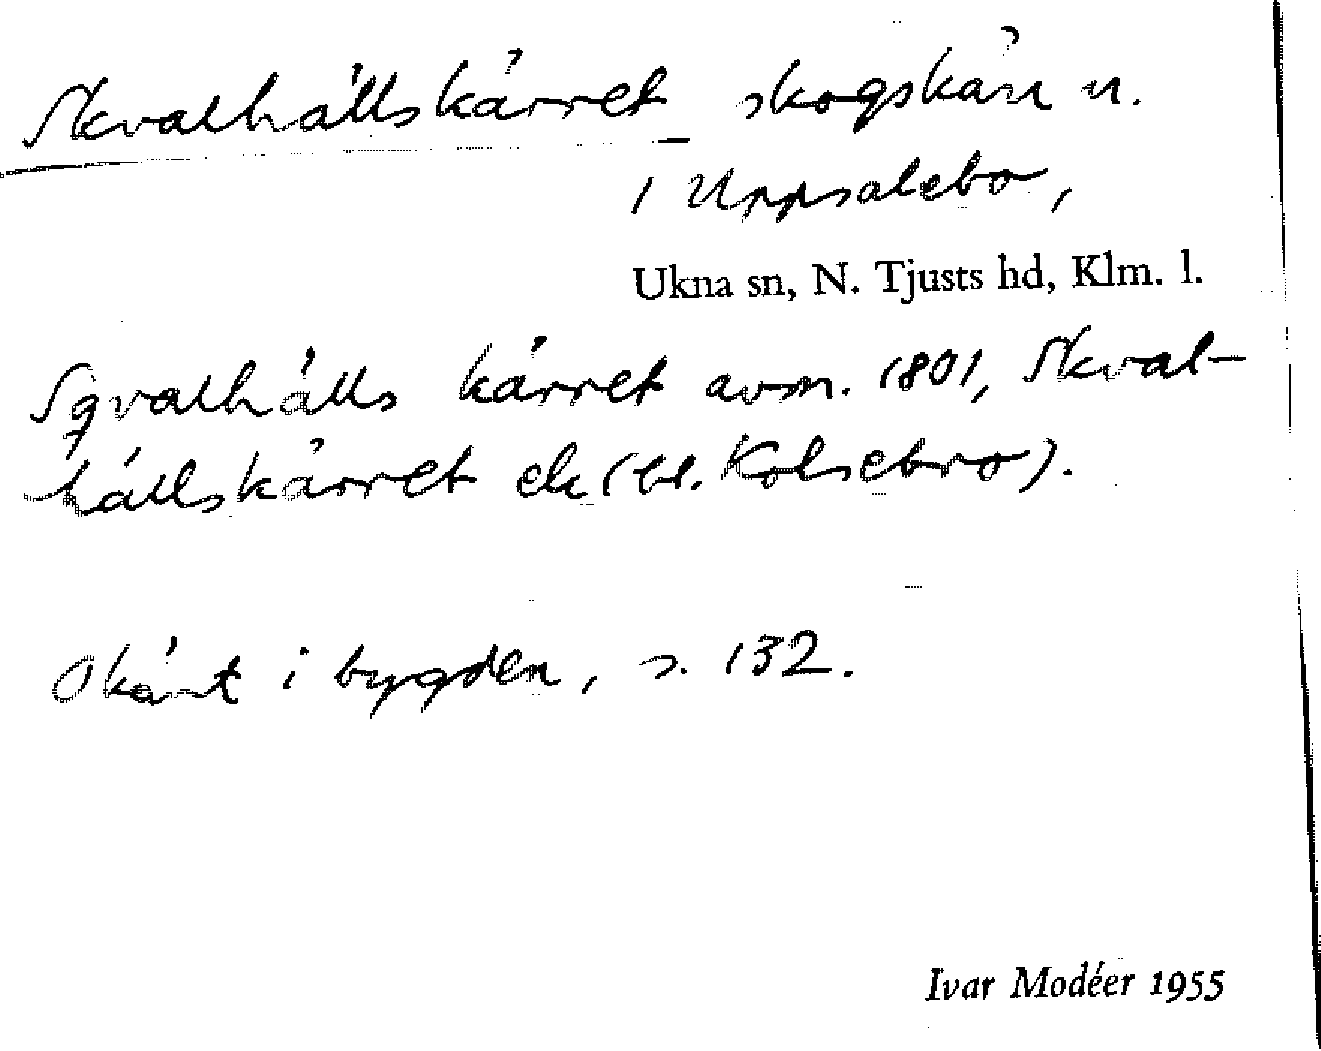 Skvalhällskärret skogskärr n.
i Uppsalebo,
Ukna sn, N. Tjusts hd, Klm. l.
Sqvalhälls kärret avm. 1801, Skval-
hällskärret ek (bl. Kolsebro).
Okänt i bygden, s. 132.
Ivar Modéer 1955